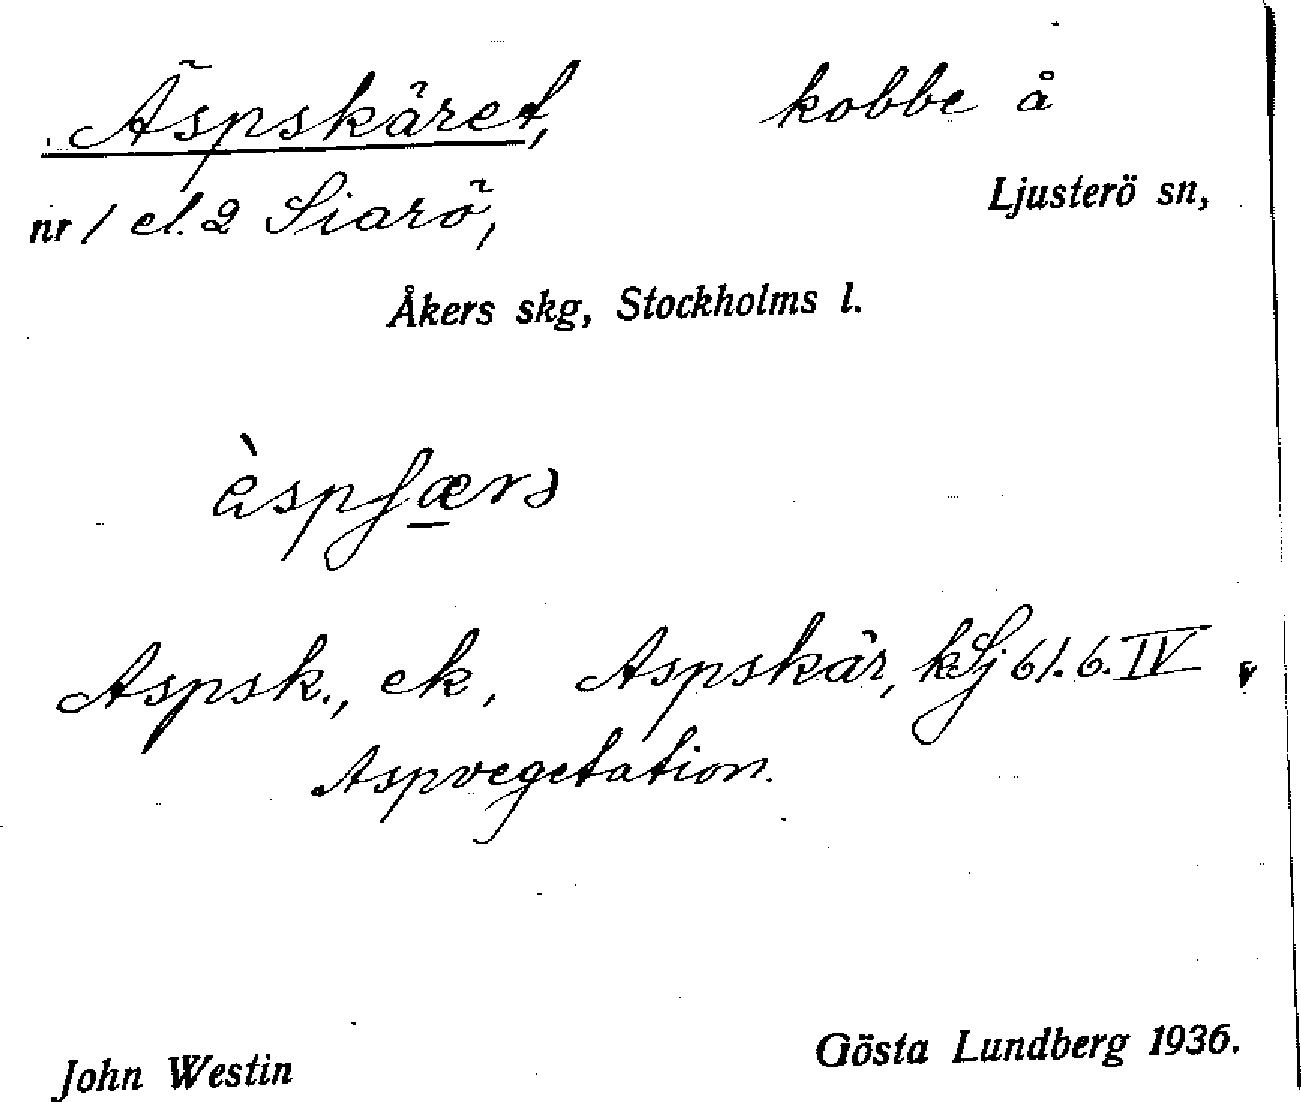 Äspskäret, kobbe å
nr 1 el. 2 Siarö, Ljusterö sn,
Åkers skg, Stockholms l.
Aspsk., ek, Aspskär, kSj 61.6.IV
Aspvegetation.
John Westin Gösta Lundberg 1936.